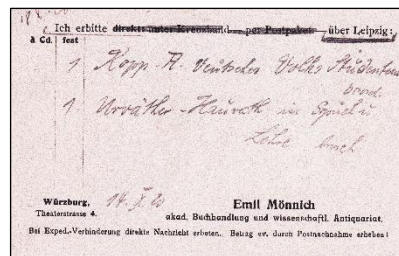 Ich erbitte direkt unter Kreuzband — per Postpaket — über Leipzig:
à Cd. fest
1 Kopp - A. Deutsches Volks- Studenten
1 Urväter - Hausrath in Spruch u.
Lehre
Würzburg, 14. X. 20
Theaterstrasse 4.
Emil Mönnich
akad. Buchhandlung und wissenschaftl. Antiquariat.
Bei Exped.-Verhinderung direkte Nachricht erbeten. Betrag ev. durch Postnachnahme erheben!